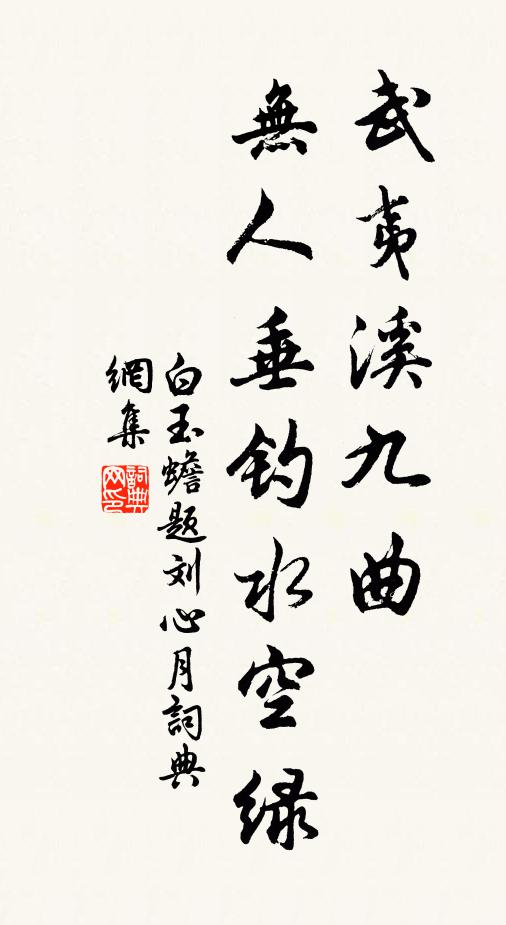 武夷溪九曲
無人垂钓水空緑
白玉蟾题刘心月詞典
網集
詞典
网印